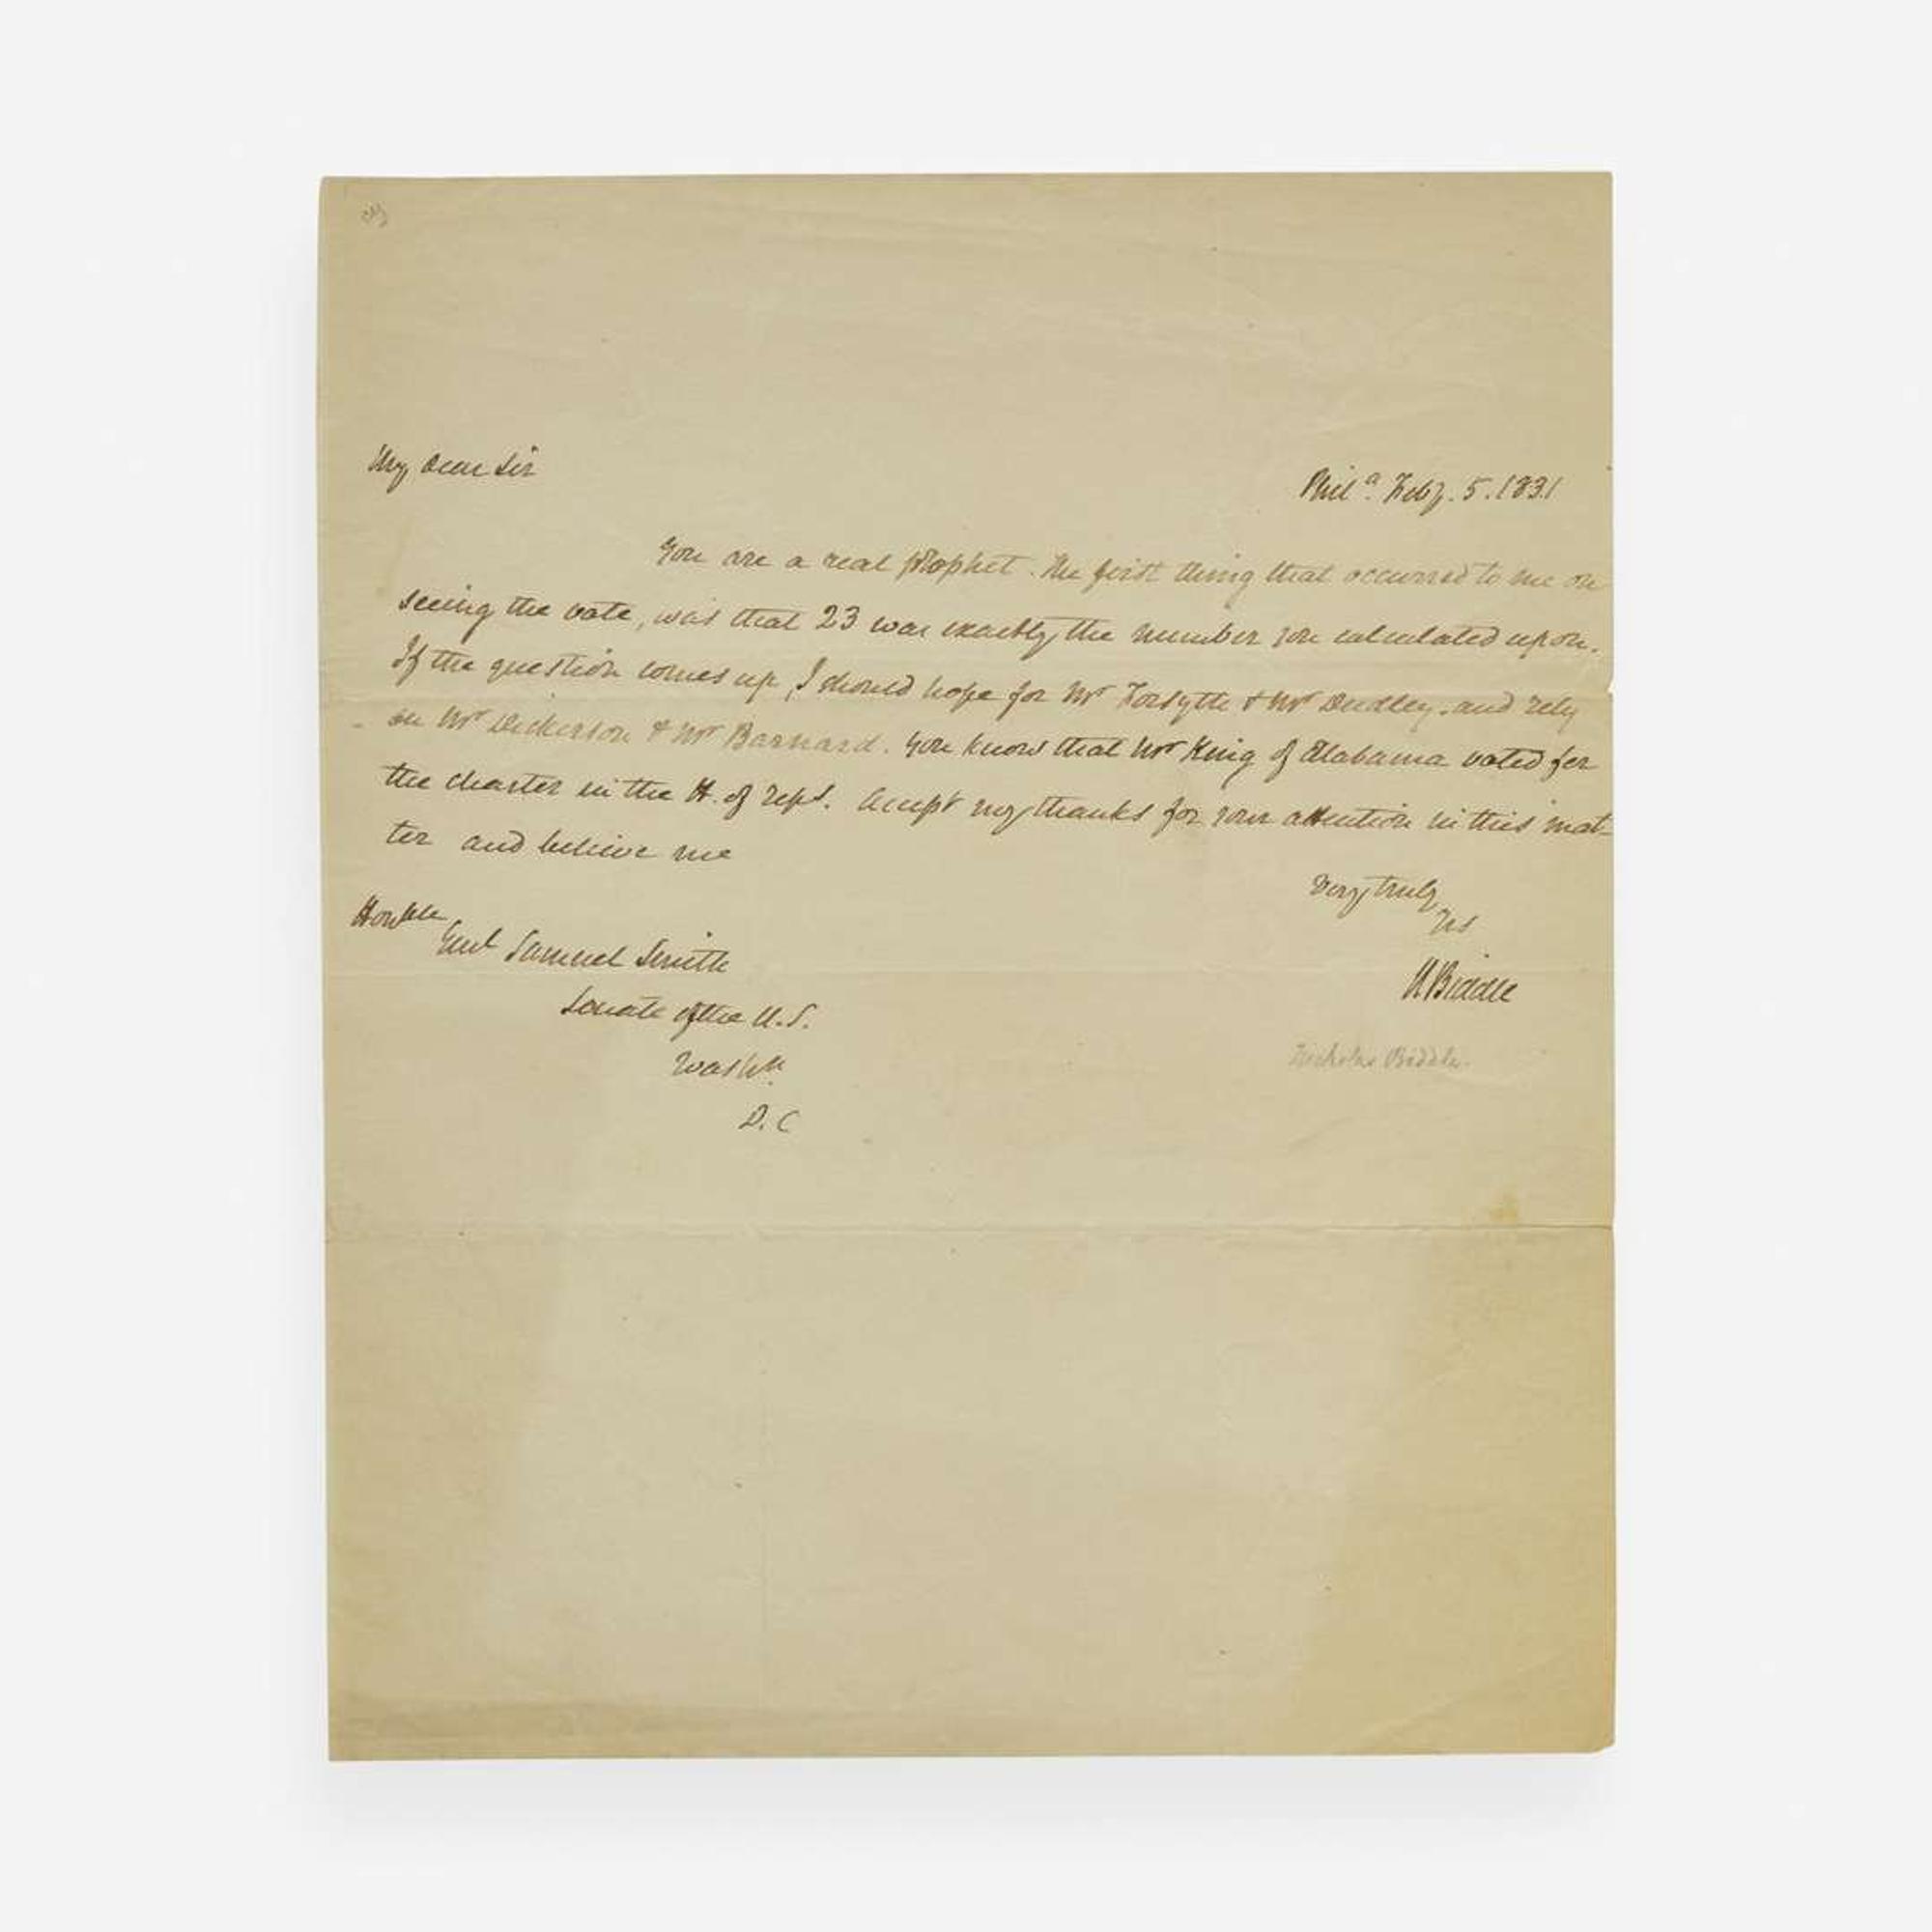 My Dear Sir
Phila. Feby. 5. 1831
You are a real prophet. The first thing that occurred to me on
seeing the vote, was that 23 was exactly the number you calculated upon.
If the question comes up, I should hope for Mr Forsyth & Mr Dudley. and rely
on Mr Dickerson & Mr Barnard. You know that Mr King of Alabama voted for
the charter in the H. of reps. Accept my thanks for your attention in this mat-
ter and believe me
Very truly
Yrs
NBiddle
Honble
Genl Samuel Smith
Senate of the U.S.
Washn.
D. C
Nicholas Biddle.